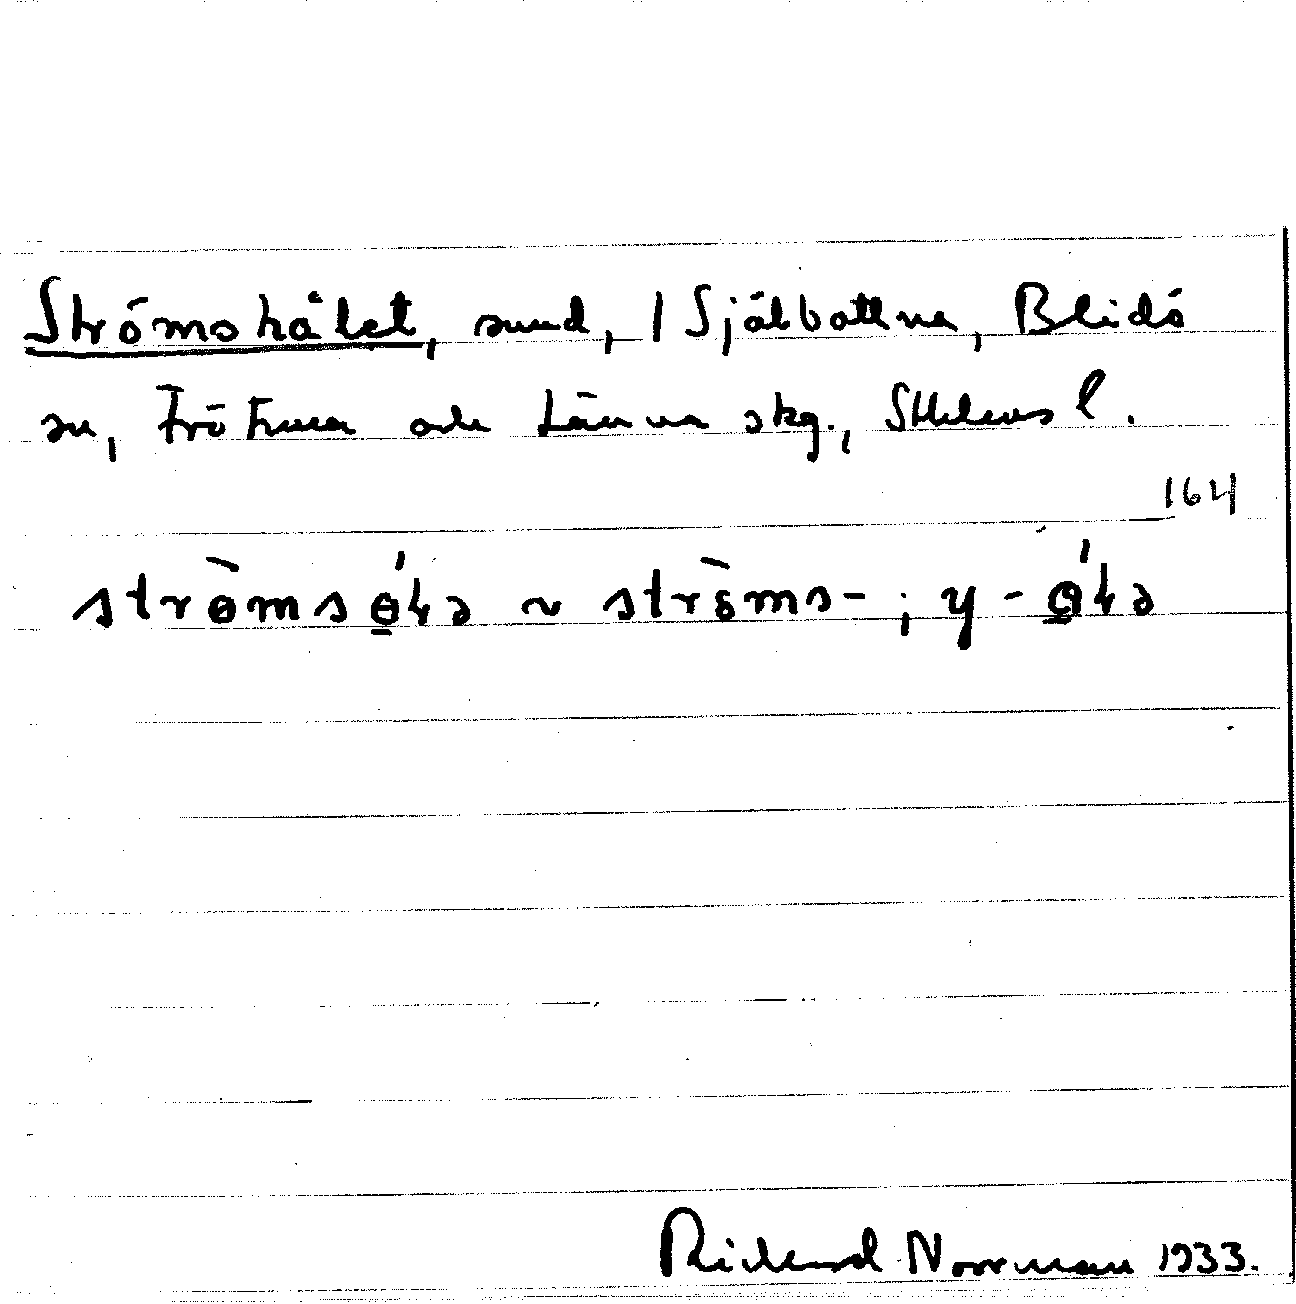 Strömshålet, sund, 1 Själbottna, Blidö
sn, Frötuna och Länna skg., Sthlms l.
164
strө̀msө̲́lə ~ strèms- ; y - ө̲́lə
Rickard Norrman 1933.